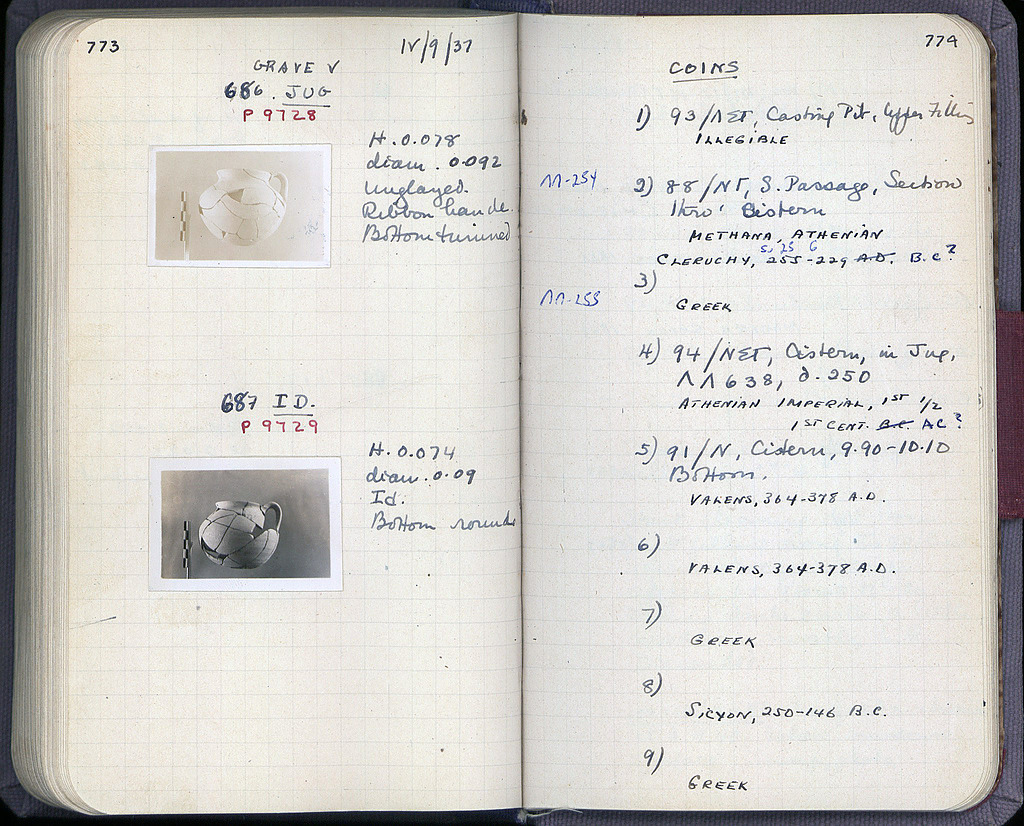 773
IV/9/37
GRAVE V
686. JUG
P 9728
H. 0.078
diam. 0.092
Unglazed.
Ribbon handle.
Bottom turned
687 ID.
P 9729
H. 0.074
diam. 0.09
Id.
Bottom round
774
COINS
1) 93/ΛΣΤ, Casting Pit, Upper Filling
ILLEGIBLE
ΛΛ-254
2) 88/ΝΓ, S. Passage, Section
thro' Cistern
METHANA, ATHENIAN
CLERUCHY, 255-229 A.D. B.C?
3)
ΛΛ-255
GREEK
4) 94/ΝΣΤ, Cistern, in Jug,
ΛΛ 638, d. 250
ATHENIAN IMPERIAL, 1ST 1/2
1ST CENT. B.C. AC?
5) 91/N, Cistern, 9.90-10.10
Bottom.
VALENS, 364-378 A.D.
6)
VALENS, 364-378 A.D.
7)
GREEK
8)
SICYON, 250-146 B.C.
9)
GREEK